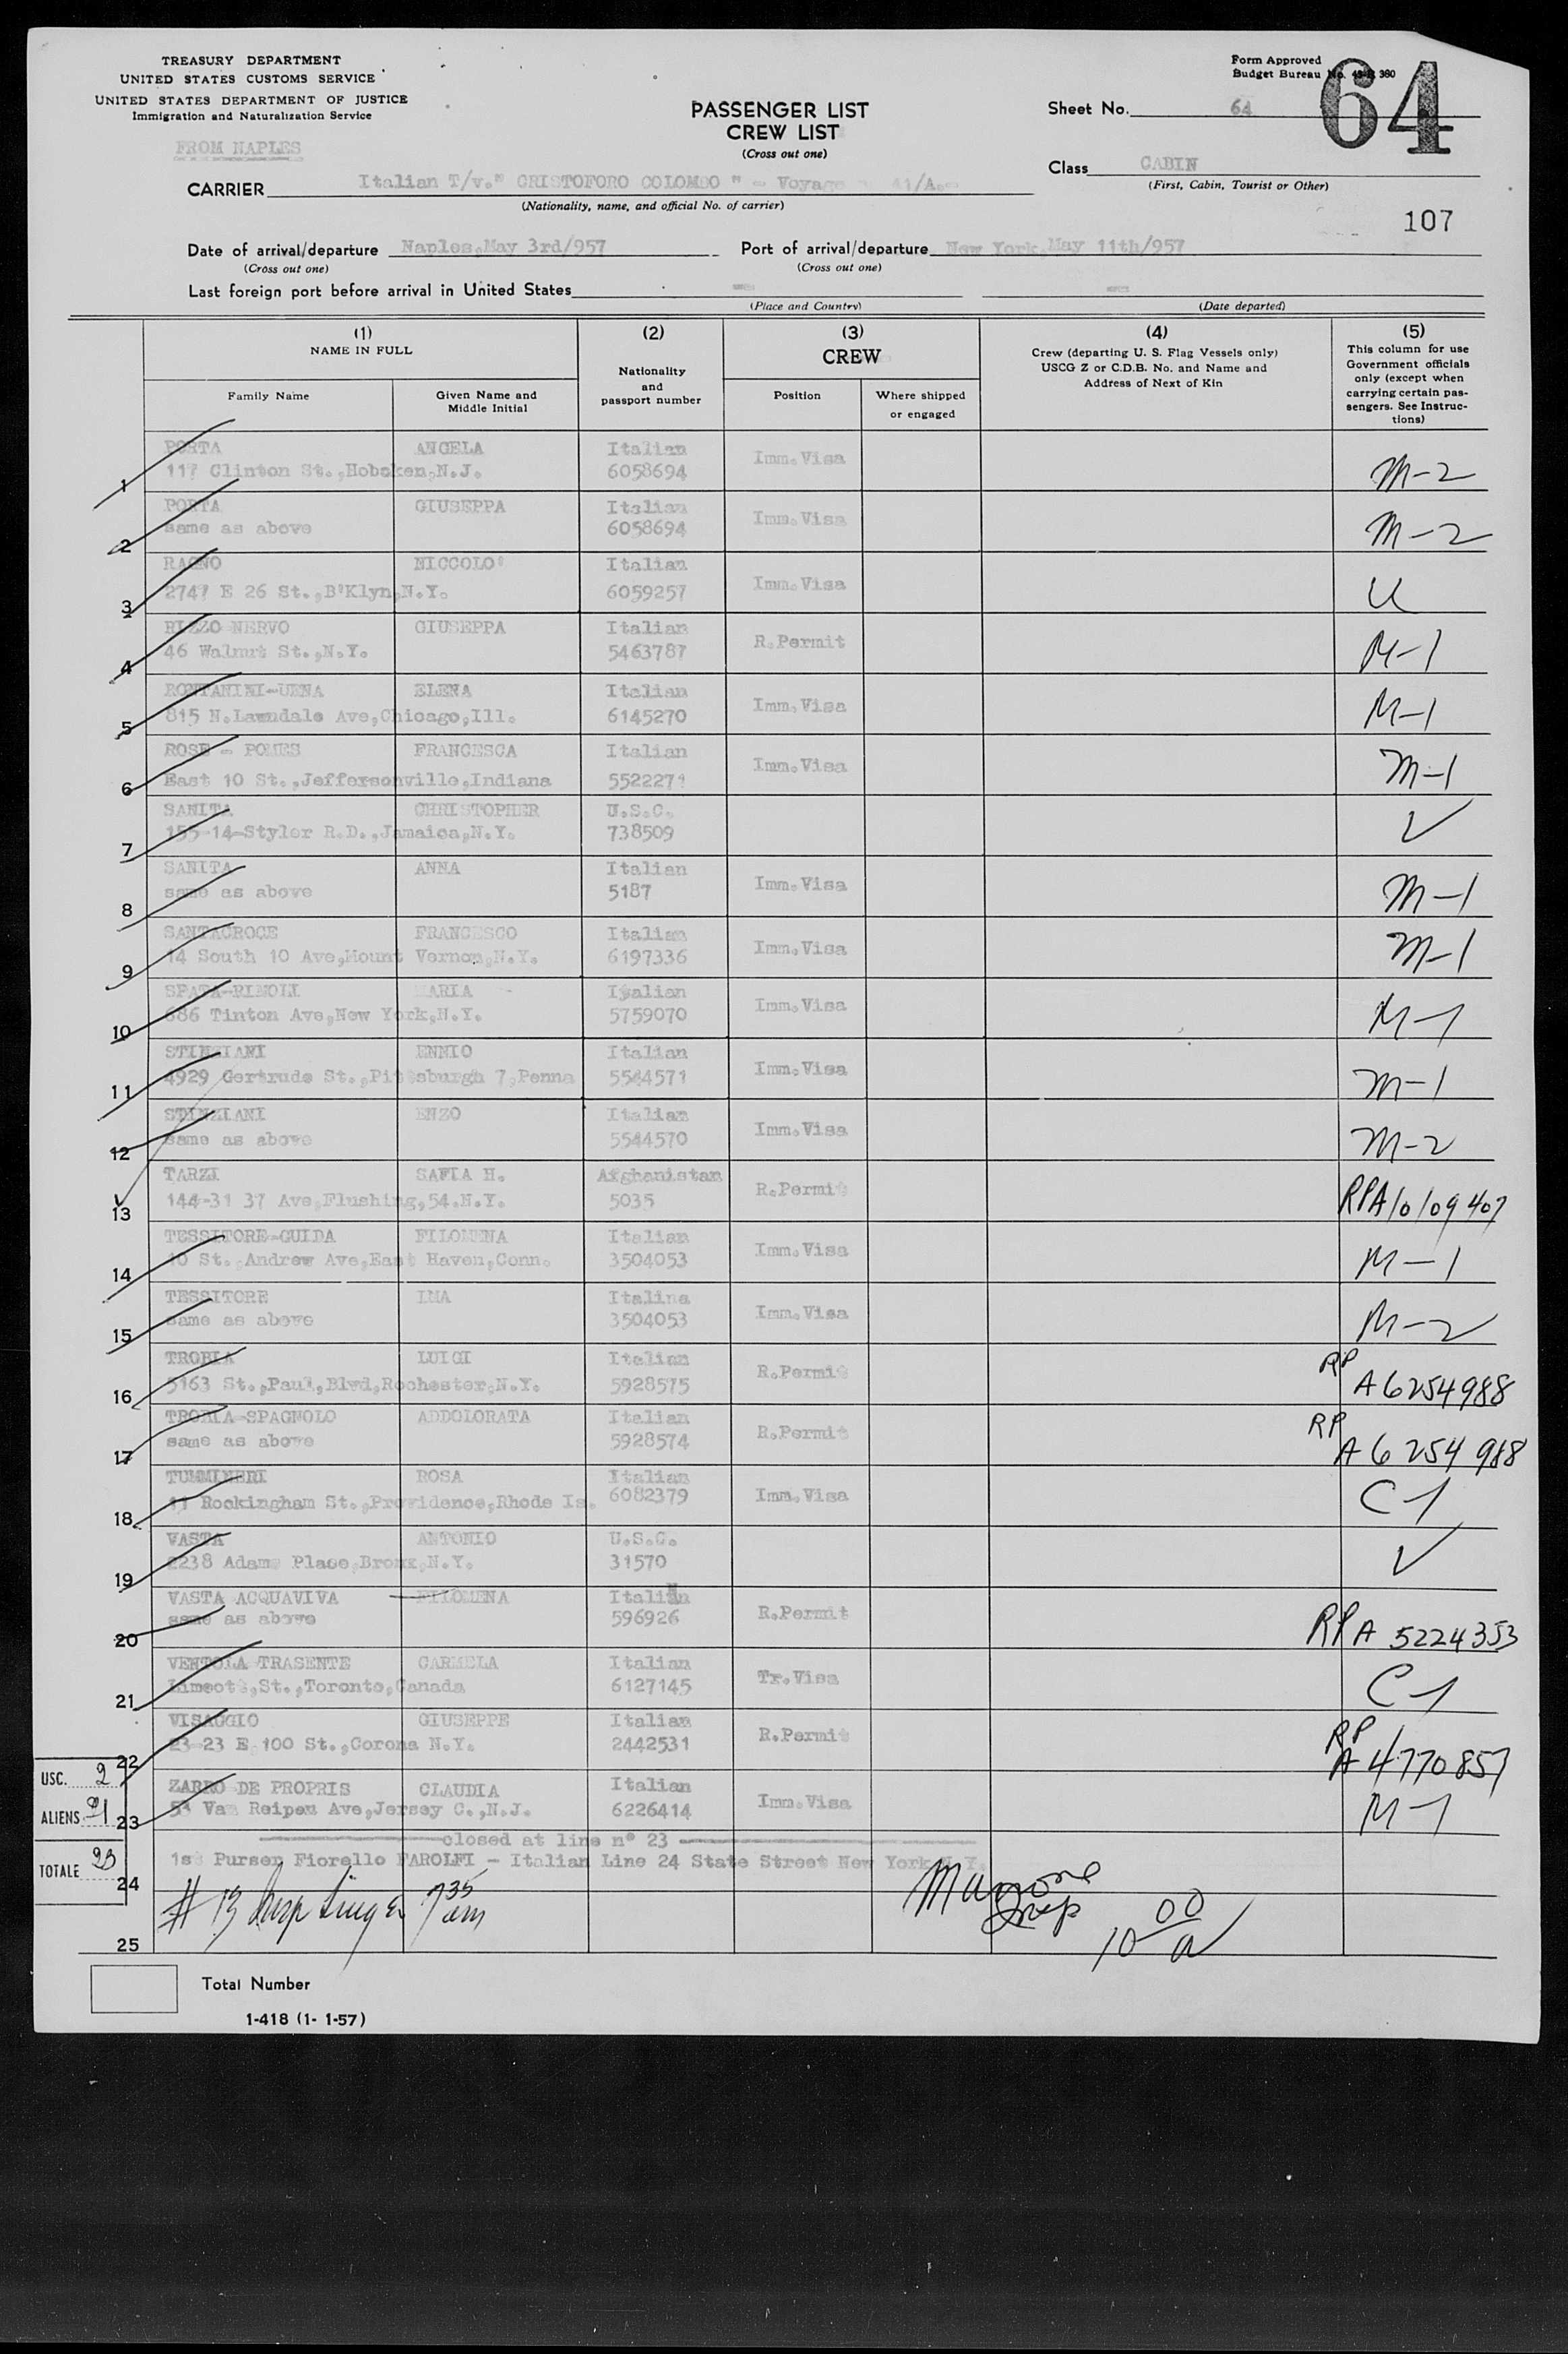 TREASURY DEPARTMENT
UNITED STATES CUSTOMS SERVICE
UNITED STATES DEPARTMENT OF JUSTICE
Immigration and Naturalization Service
FROM NAPLES
PASSENGER LIST
CREW LIST
(Cross out one)
Form Approved
Budget Bureau No. 380
64
Sheet No. 64
Class CABIN
(First, Cabin, Tourist or Other)
CARRIER Italian T/v." CRISTOFORO COLOMBO " - Voyage 41/A.-
(Nationality, name, and official No. of carrier)
107
Date of arrival/departure Naples,May 3rd/957 Port of arrival/departure New York,May 11th/957
(Cross out one) (Cross out one)
Last foreign port before arrival in United States
(Place and Country) (Date departed)
(1) (2) (3) (4) (5)
NAME IN FULL
Nationality and passport number
CREW
Crew (departing U. S. Flag Vessels only) USCG Z or C.D.B. No. and Name and Address of Next of Kin
This column for use Government officials only (except when carrying certain passengers. See Instructions)
Family Name Given Name and Middle Initial Position Where shipped or engaged
PORTA ANGELA Italian Imm.Visa
1 117 Clinton St.,Hoboken,N.J. 6058694 M-2
PORTA GIUSEPPA Italian Imm.Visa
2 same as above 6058694 M-2
RAGNO NICCOLO' Italian Imm.Visa
3 2747 E 26 St.,B'Klyn,N.Y. 6059257 U
RIZZO NERVO GIUSEPPA Italian R.Permit
4 46 Walnut St.,N.Y. 5463787 M-1
RONTANINI-UENA ELENA Italian Imm.Visa
5 815 N.Lawndale Ave,Chicago,Ill. 6145270 M-1
ROSE - POMES FRANCESCA Italian Imm.Visa
6 East 10 St.,Jeffersonville,Indiana 5522271 M-1
SANITA CHRISTOPHER U.S.C.
7 155-14-Styler R.D.,Jamaica,N.Y. 738509
SANITA ANNA Italian Imm.Visa
8 same as above 5187 M-1
SANTACROCE FRANCESCO Italian Imm.Visa
9 14 South 10 Ave,Mount Vernon,N.Y. 6197336 M-1
SPATA-RIMOLI MARIA Iyalian Imm.Visa
10 686 Tinton Ave,New York,N.Y. 5759070 M-1
STINZIANI ENNIO Italian Imm.Visa
11 4929 Gertrude St.,Pittsburgh 7,Penna 5544571 M-1
STINZIANI ENZO Italian Imm.Visa
12 same as above 5544570 M-2
TARZI SAFIA H. Afghanistan R.Permit
13 144-31 37 Ave,Flushing,54.N.Y. 5035 RPA10109407
TESSITORE-GUIDA FILOMENA Italian Imm.Visa
14 10 St.,Andrew Ave,East Haven,Conn. 3504053 M-1
TESSITORE IMA Italina Imm.Visa
15 same as above 3504053 M-2
TROBIA LUIGI Italian R.Permit RP
16 5163 St.,Paul,Blvd,Rochester,N.Y. 5928575 A6254988
TROBIA-SPAGNOLO ADDOLORATA Italian R.Permit RP
17 same as above 5928574 A6254988
TUMMINERI ROSA Italian Imm.Visa
18 41 Rockingham St.,Providence,Rhode Is. 6082379 C-1
VASTA ANTONIO U.S.C.
19 2238 Adams Place,Bronx,N.Y. 31570
VASTA ACQUAVIVA FILOMENA Italian R.Permit
20 same as above 596926 RPA 5224353
VENTOLA TRASENTE CARMELA Italian Tr.Visa
21 St.,Toronto,Canada 6127145 C-1
VISAGGIO GIUSEPPE Italian R.Permit RP
22 23-23 E 100 St.,Corona N.Y. 2442531 A4770857
ZARRO DE PROPRIS CLAUDIA Italian Imm.Visa
23 53 Van Reipen Ave,Jersey C.,N.J. 6226414 M-1
USC. 2
ALIENS 21
TOTALE 23
closed at line n° 23
24 1st Purser Fiorello FAROLFI - Italian Line 24 State Street New York N.Y.
# 13 7 35 am
Insp
10 00 a
25
Total Number
I-418 (1- 1-57)